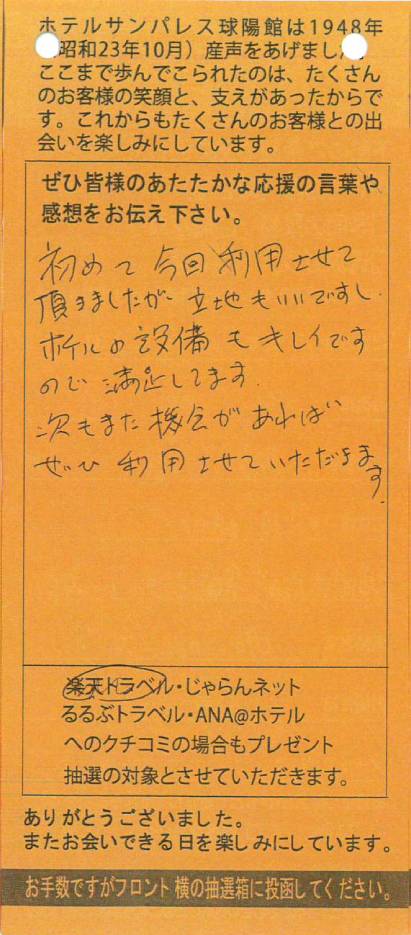 ホテルサンパレス球陽館は1948年
昭和23年10月）産声をあげました
ここまで歩んでこられたのは、たくさん
のお客様の笑顔と、支えがあったからで
す。これからもたくさんのお客様との出
会いを楽しみにしています。
ぜひ皆様のあたたかな応援の言葉や
感想をお伝え下さい。
初めて今回利用させて
頂きましたが立地もいいですし、
ホテルの設備もキレイです
ので満足してます。
次もまた機会があれば
ぜひ利用させていただきます。
楽天トラベル・じゃらんネット
るるぶトラベル・ANA@ホテル
へのクチコミの場合もプレゼント
抽選の対象とさせていただきます。
ありがとうございました。
またお会いできる日を楽しみにしています。
お手数ですがフロント横の抽選箱に投函してください。